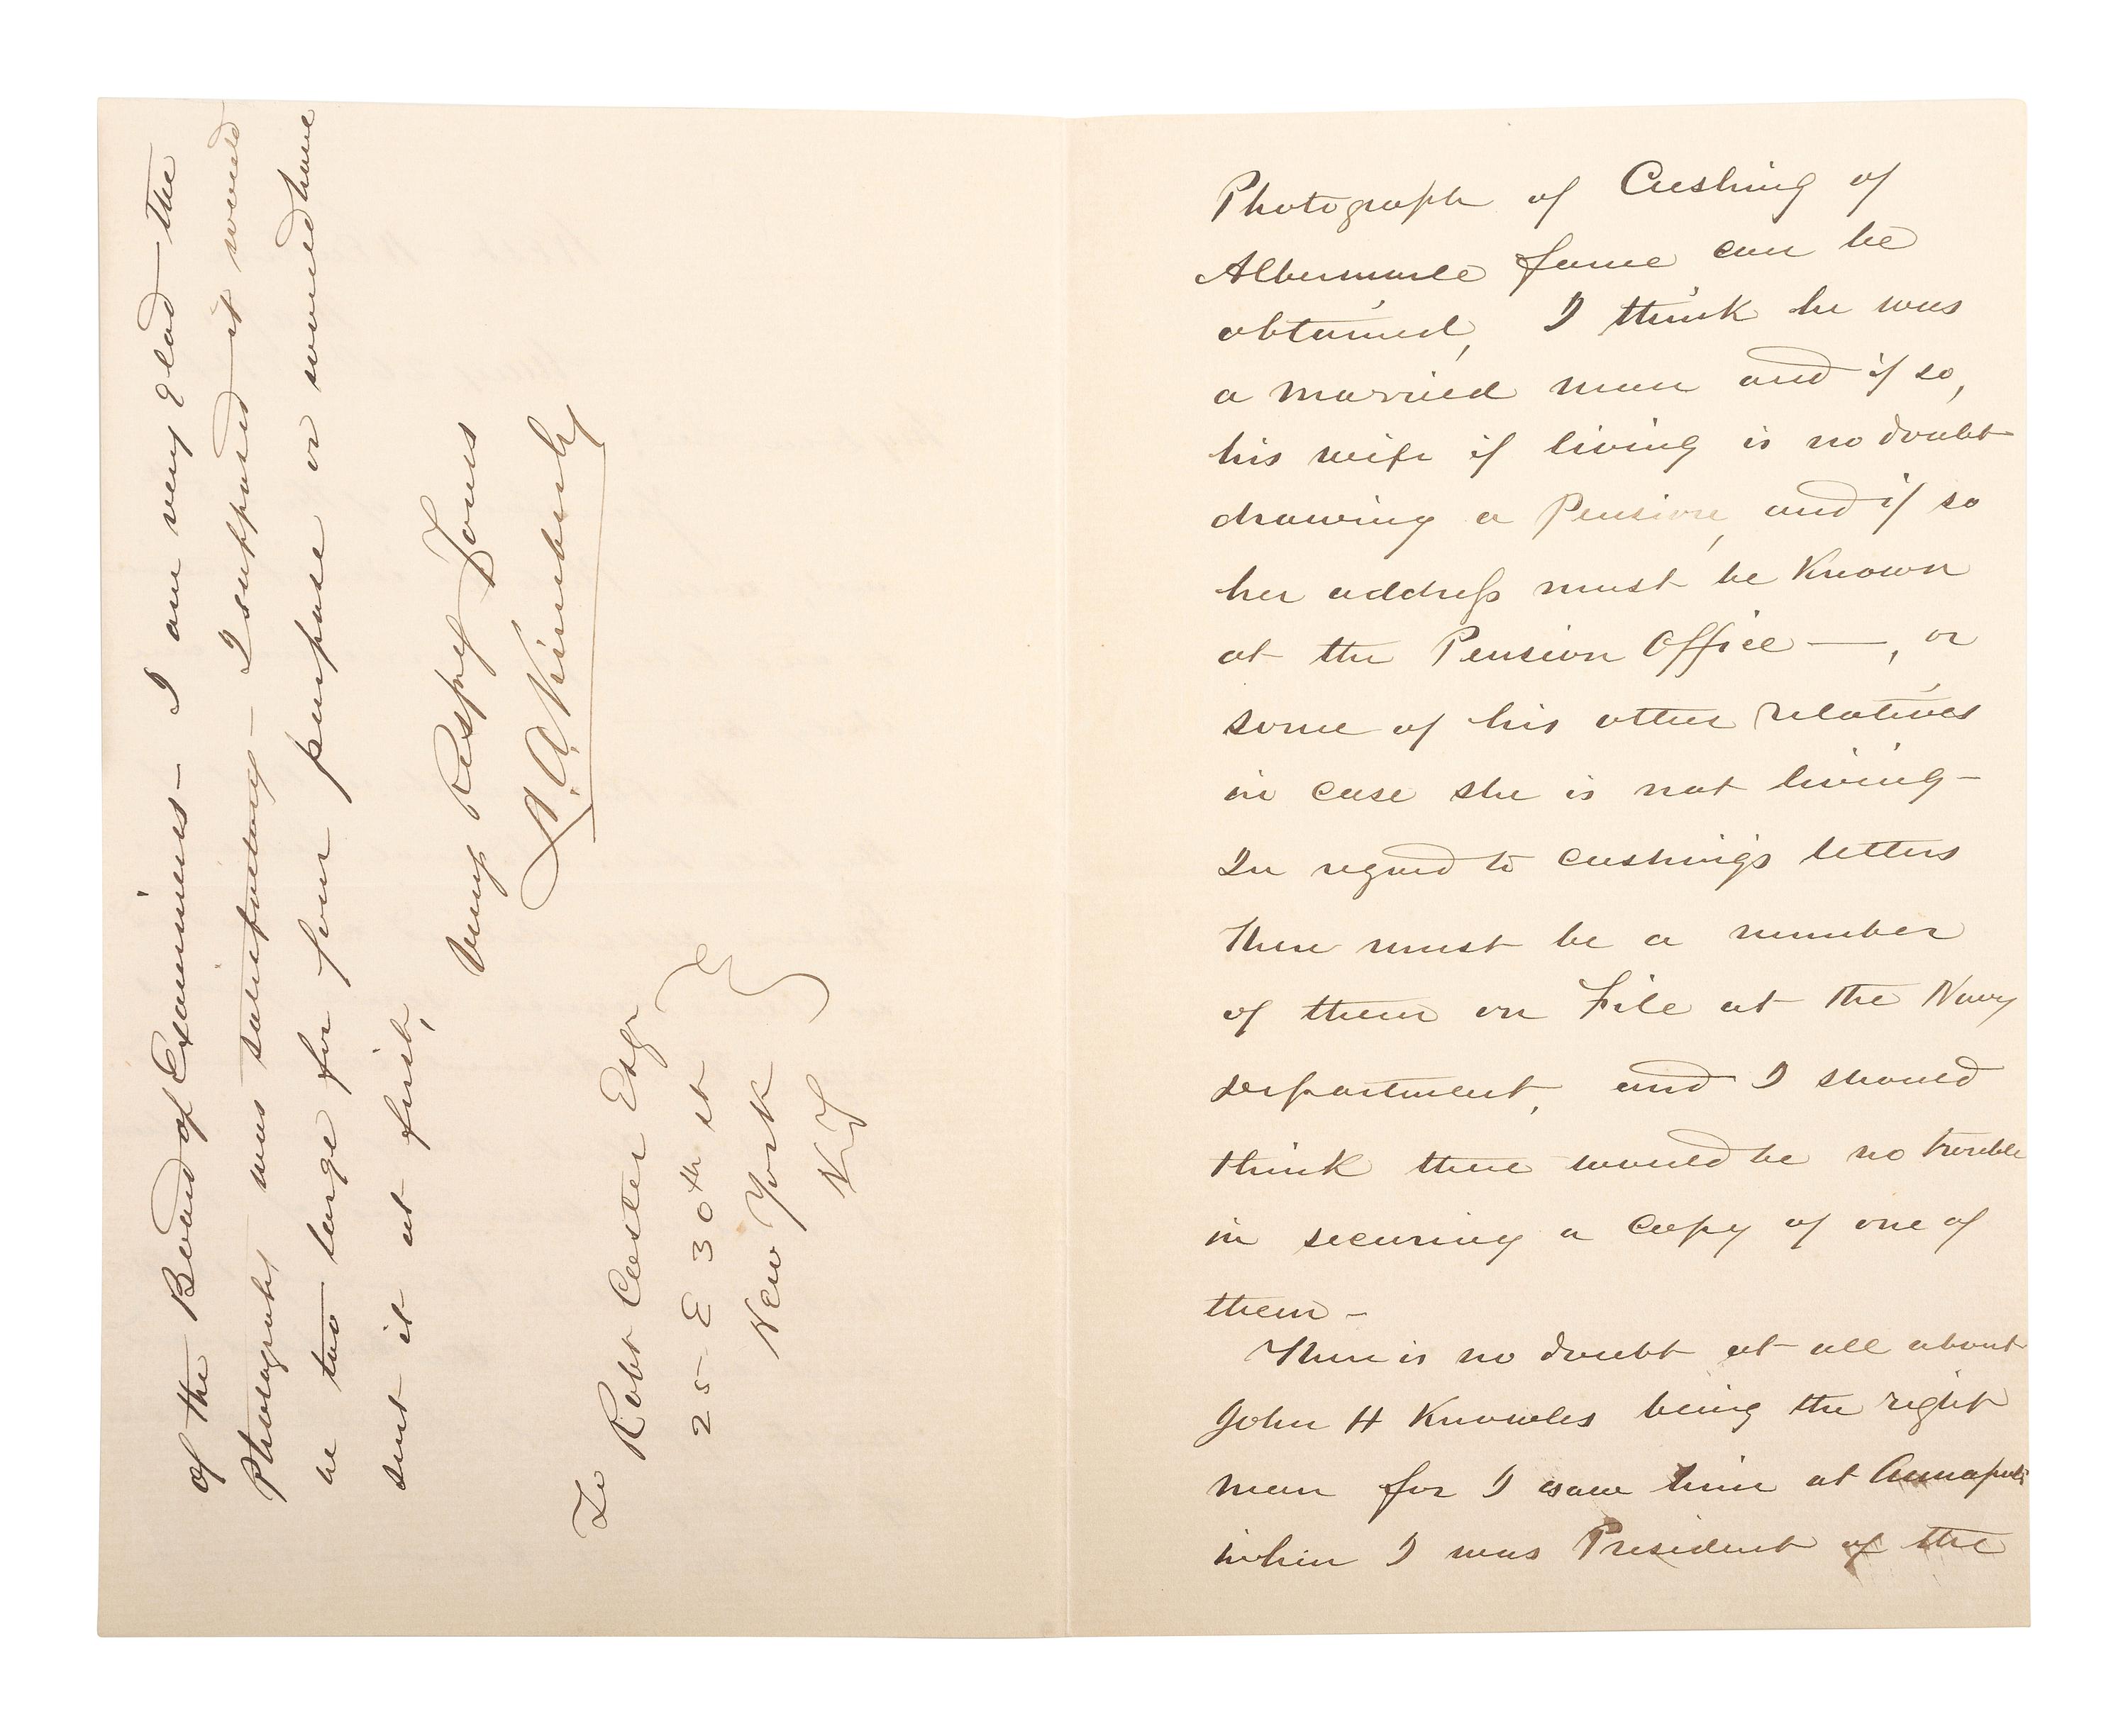 Photograph of Cushing of
Albermarle fame can be
obtained, I think he was
a married man and if so,
his wife if living is no doubt
drawing a Pension, and if so
her address must be Known
at the Pension Office —, or
some of his other relatives
in case she is not living –
In regard to Cushing's letters
there must be a number
of them on File at the Navy
Department, and I should
think there would be no trouble
in securing a Copy of one of
them –
There is no doubt at all about
John H Knowles being the right
man for I saw him at Annapolis
when I was President of the
of the Board of Examiners – I am very glad the
Photography was satisfactory – I supposed it would
be too large for your purpose or would have
sent it at first,
Very Respy Yours
L. A. Kimberly
To Robt Coster Esqr
25 E 30th st
New York
N Y